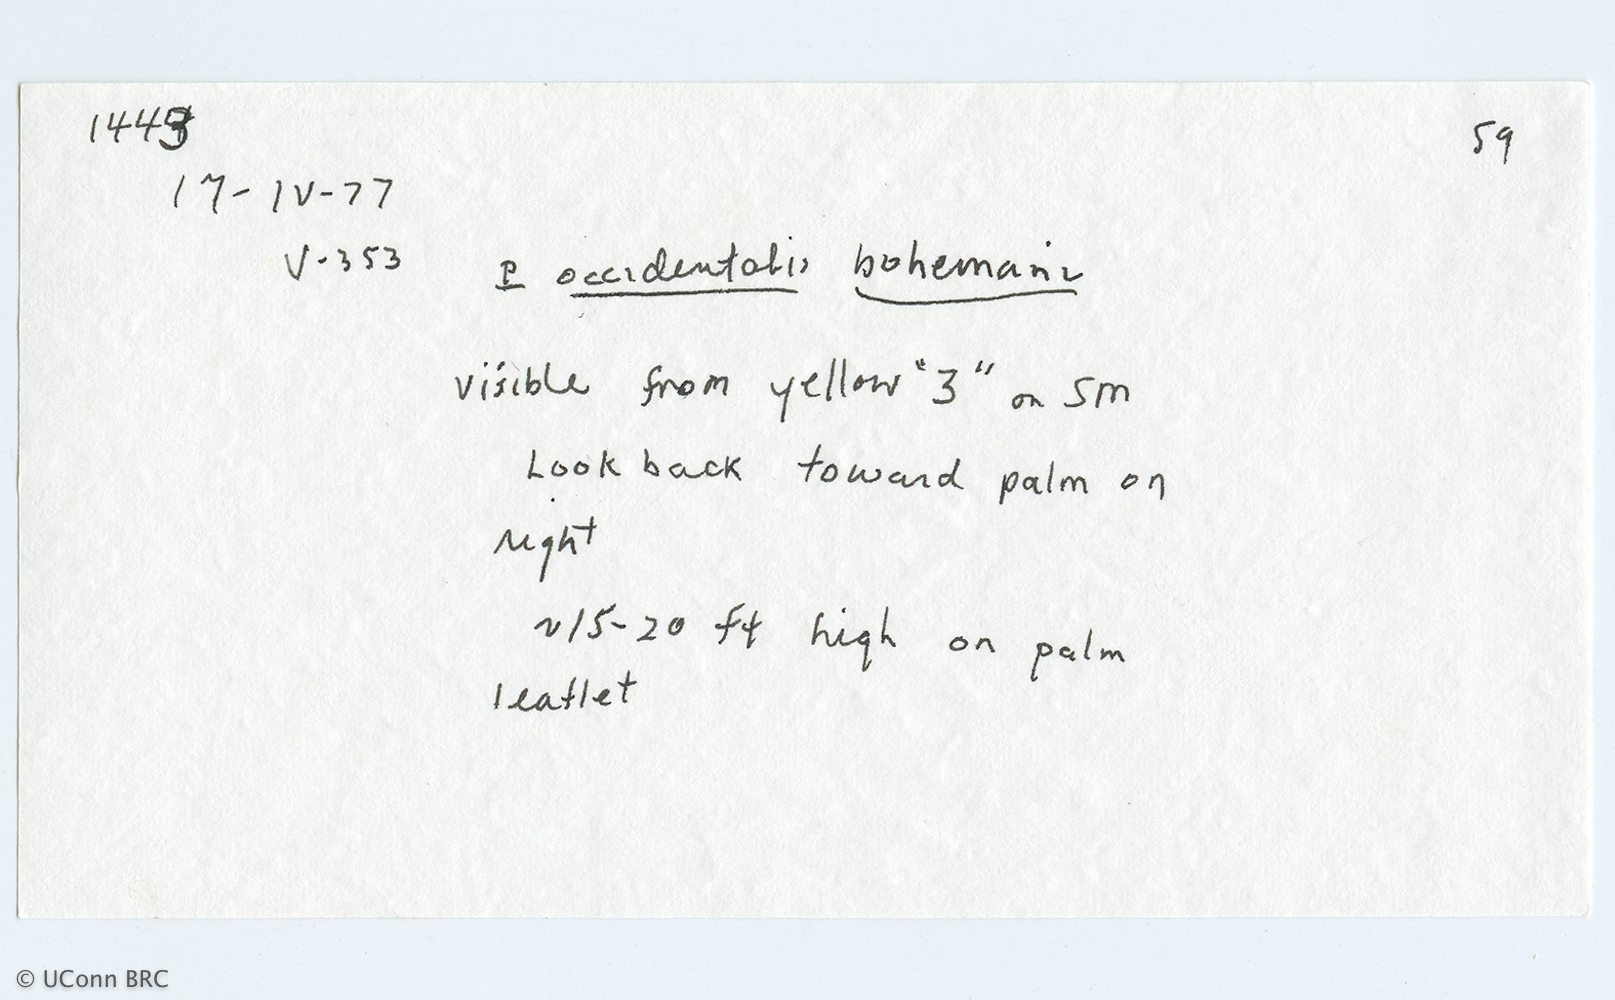 59
17-IV-77
V-353 P occidentalis bohemani
visible from yellow "3" on SM
Look back toward palm on
right
~15-20 ft high on palm
leaflet
© UConn BRC